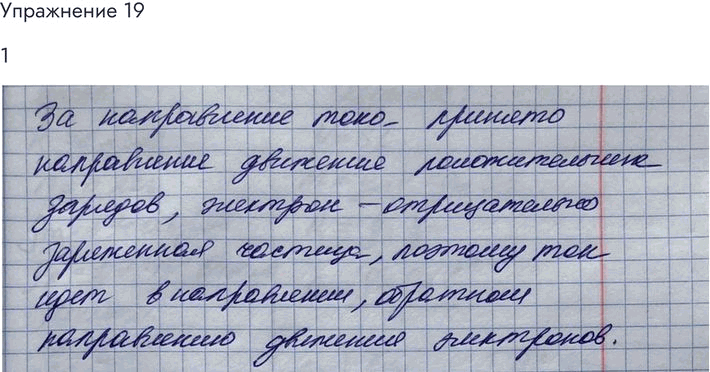 Упражнение 19
1
За направление тока принято
направление движение положительных
зарядов, электрон – отрицательно
заряженная частица, поэтому ток
идет в направлении, обратном
направлению движения электронов.